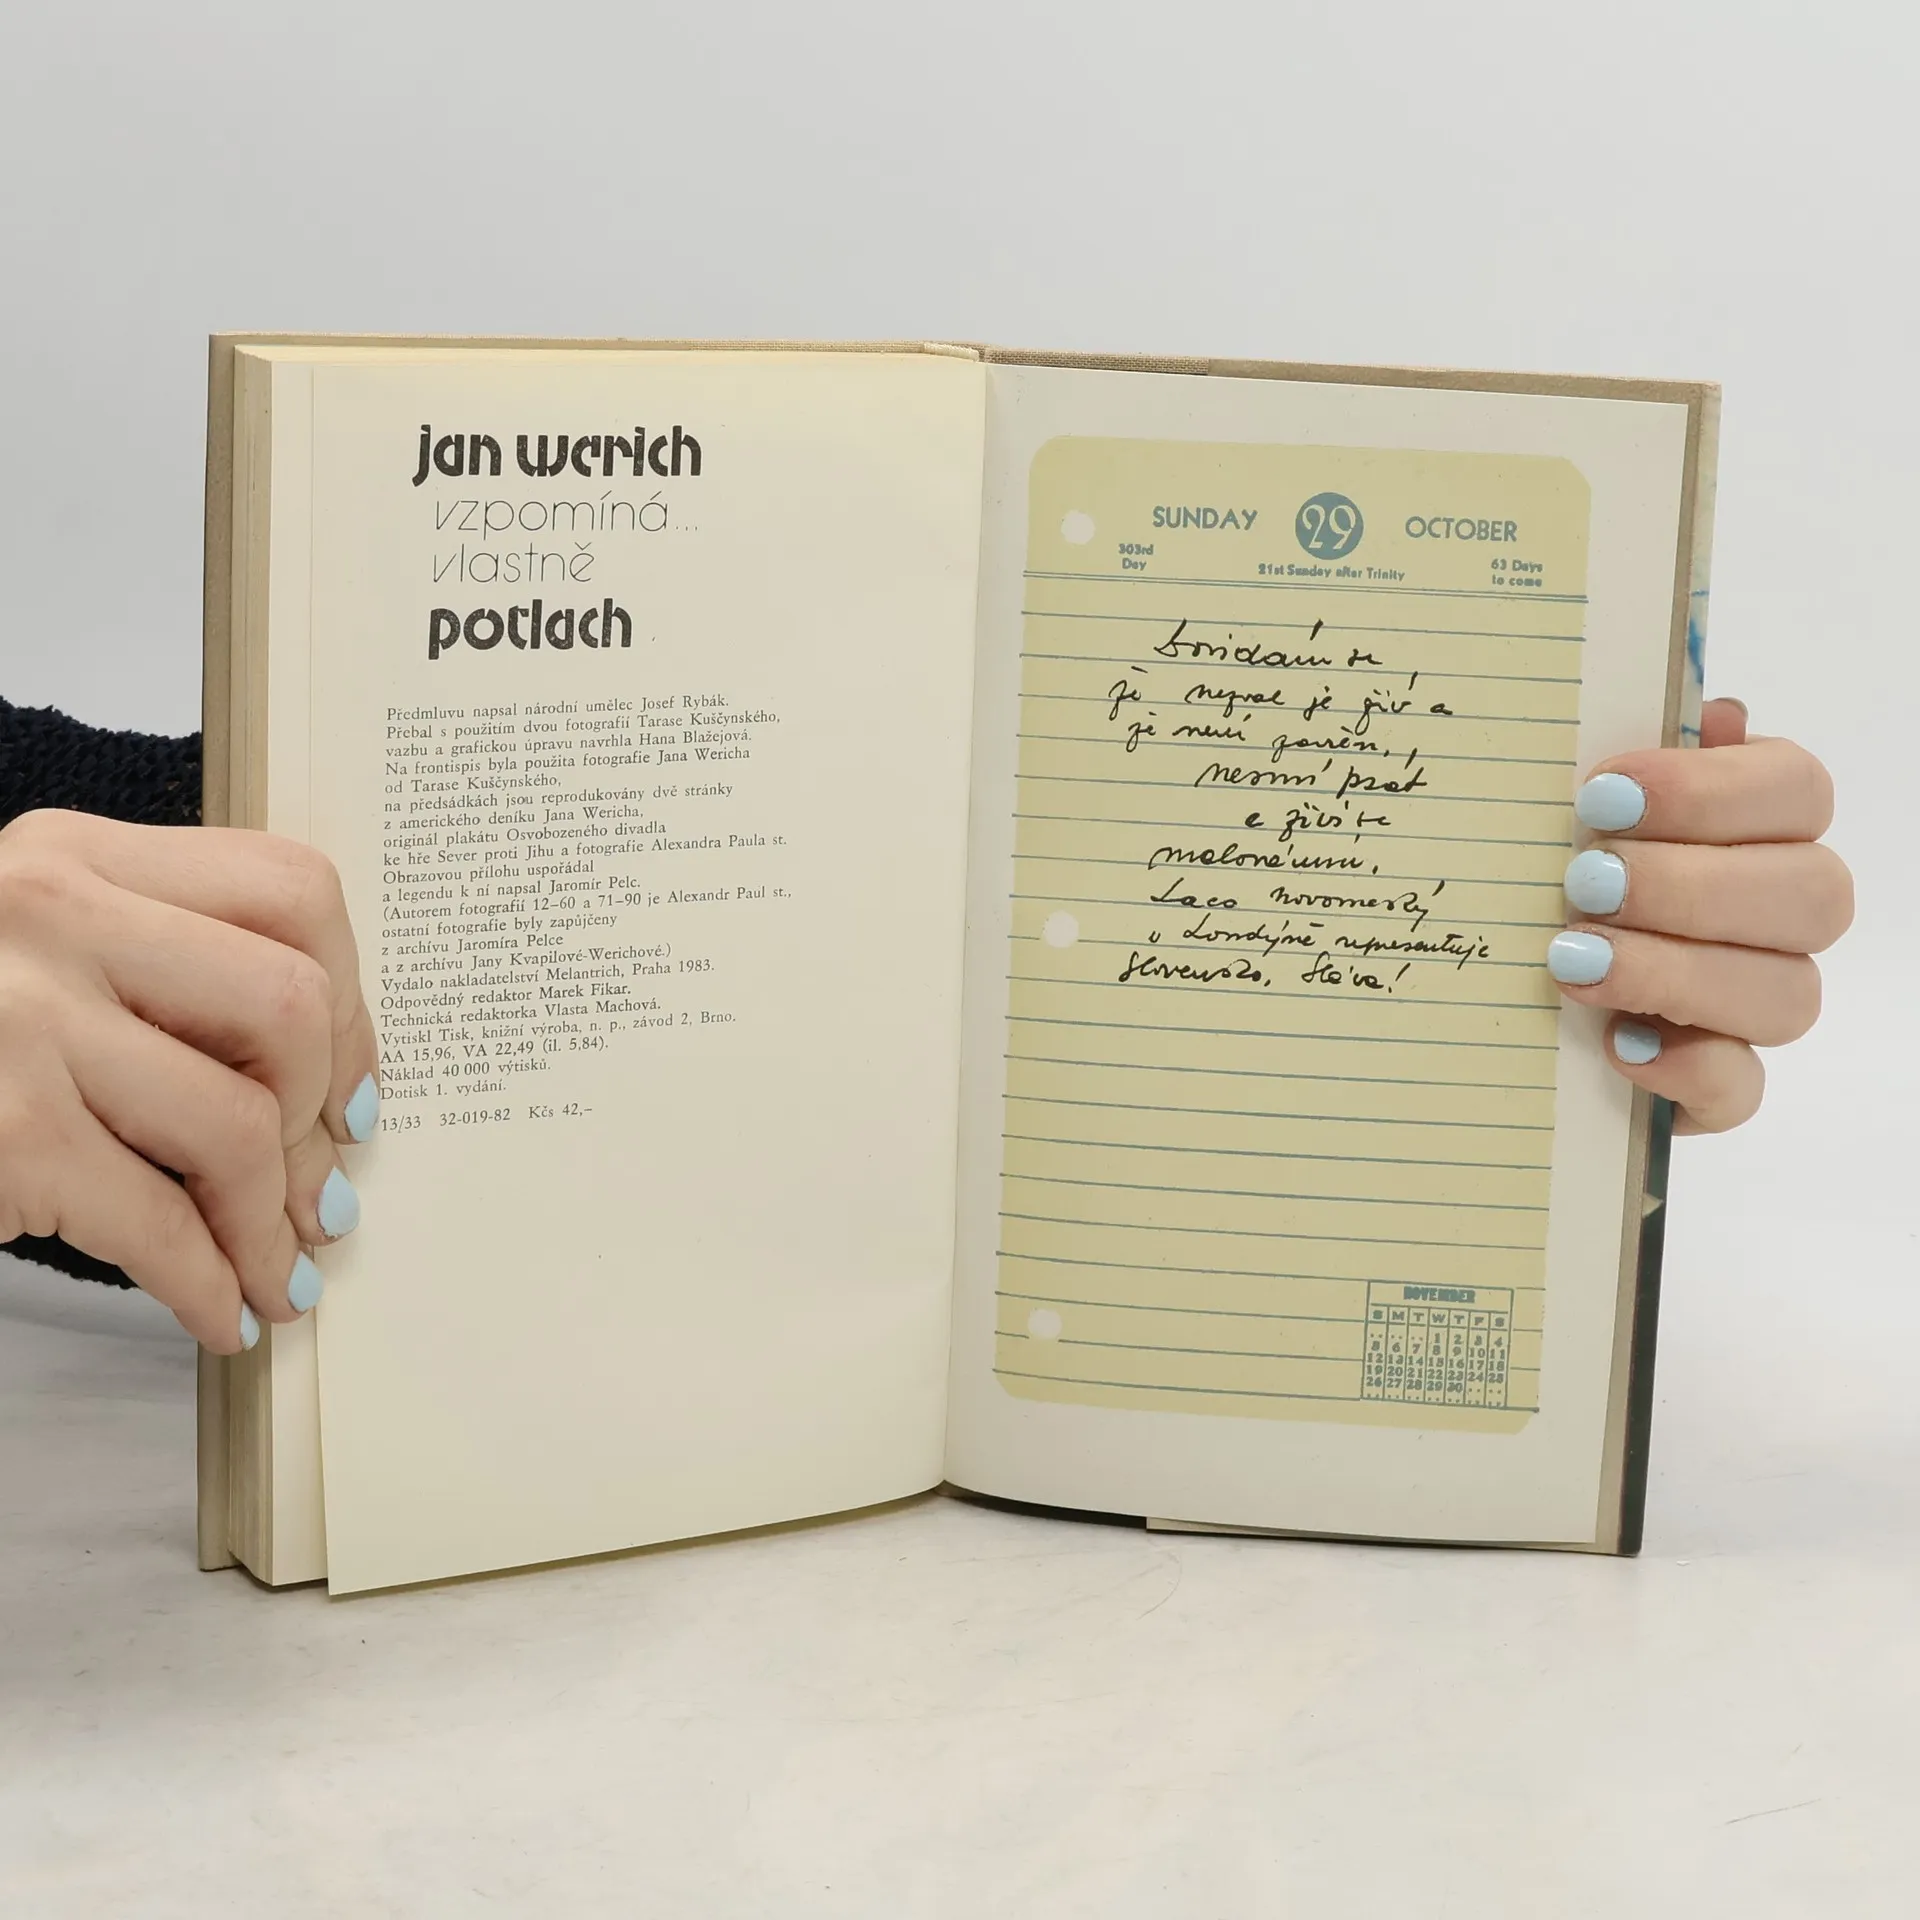 jan werich
vzpomíná...
vlastně
potlach
Předmluvu napsal národní umělec Josef Rybák.
Přebal s použitím dvou fotografií Tarase Kuščynského,
vazbu a grafickou úpravu navrhla Hana Blažejová.
Na frontispis byla použita fotografie Jana Wericha
od Tarase Kuščynského,
na předsádkách jsou reprodukovány dvě stránky
z amerického deníku Jana Wericha,
originál plakátu Osvobozeného divadla
ke hře Sever proti Jihu a fotografie Alexandra Paula st.
Obrazovou přílohu uspořádal
a legendu k ní napsal Jaromír Pelc.
(Autorem fotografií 12–60 a 71–90 je Alexandr Paul st.,
ostatní fotografie byly zapůjčeny
z archívu Jaromíra Pelce
a z archívu Jany Kvapilové-Werichové.)
Vydalo nakladatelství Melantrich, Praha 1983.
Odpovědný redaktor Marek Fikar.
Technická redaktorka Vlasta Machová.
Vytiskl Tisk, knižní výroba, n. p., závod 2, Brno.
AA 15,96, VA 22,49 (il. 5,84).
Náklad 40 000 výtisků.
Dotisk 1. vydání.
13/33 32-019-82 Kčs 42,–
SUNDAY 29 OCTOBER
303rd
Day
21st Sunday after Trinity
63 Days
to come
Dovídám se,
že nezval je živ a
že není zavřen,
nesmí psát
a živí se
malováním.
Laco Novomeský
v Londýně representuje
Slovensko. Sláva!
NOVEMBER
S M T W T F S
.. .. .. 1 2 3 4
5 6 7 8 9 10 11
12 13 14 15 16 17 18
19 20 21 22 23 24 25
26 27 28 29 30 .. ..